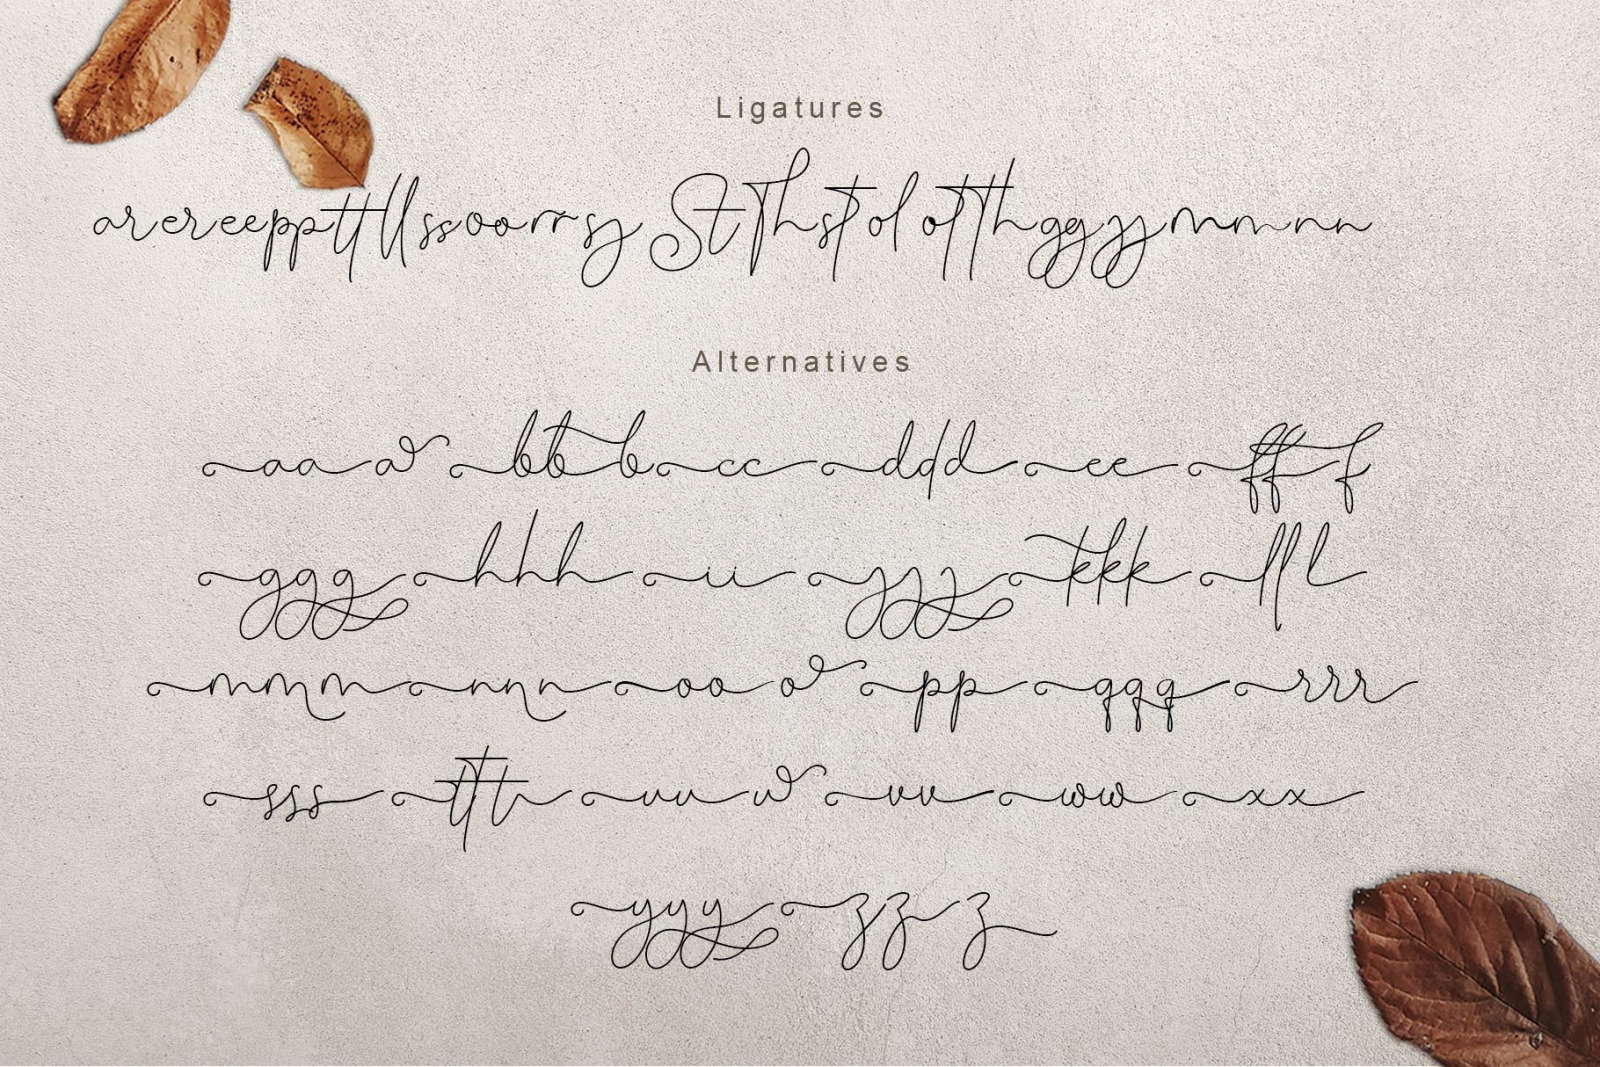 Ligatures
arereeppttllssoorrsy StThstolotthggyymmnn
Alternatives
aaa bbb cc ddd ee fff
ggg hhh ii jjj kkk lll
mmm nnn ooo pp qqq rrr
sss ttt uuu vv ww xx
yyy zzz